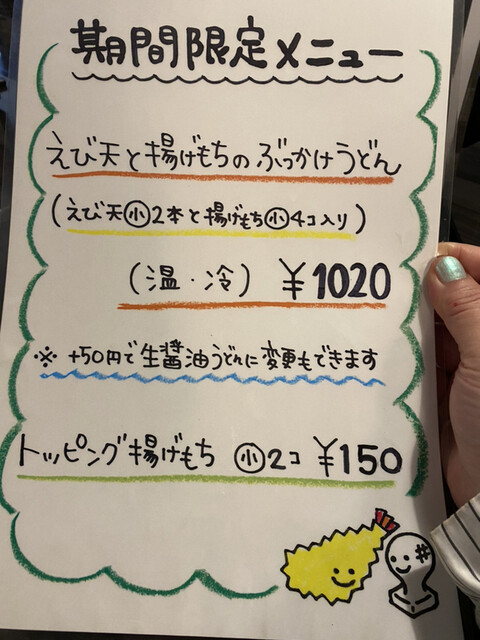 期間限定メニュー
えび天と揚げもちのぶっかけうどん
(えび天㊙2本と揚げもち㊙4コ入り)
(温・冷) ¥1020
※ +50円で生醤油うどんに変更もできます
トッピング揚げもち ㊙2コ ¥150